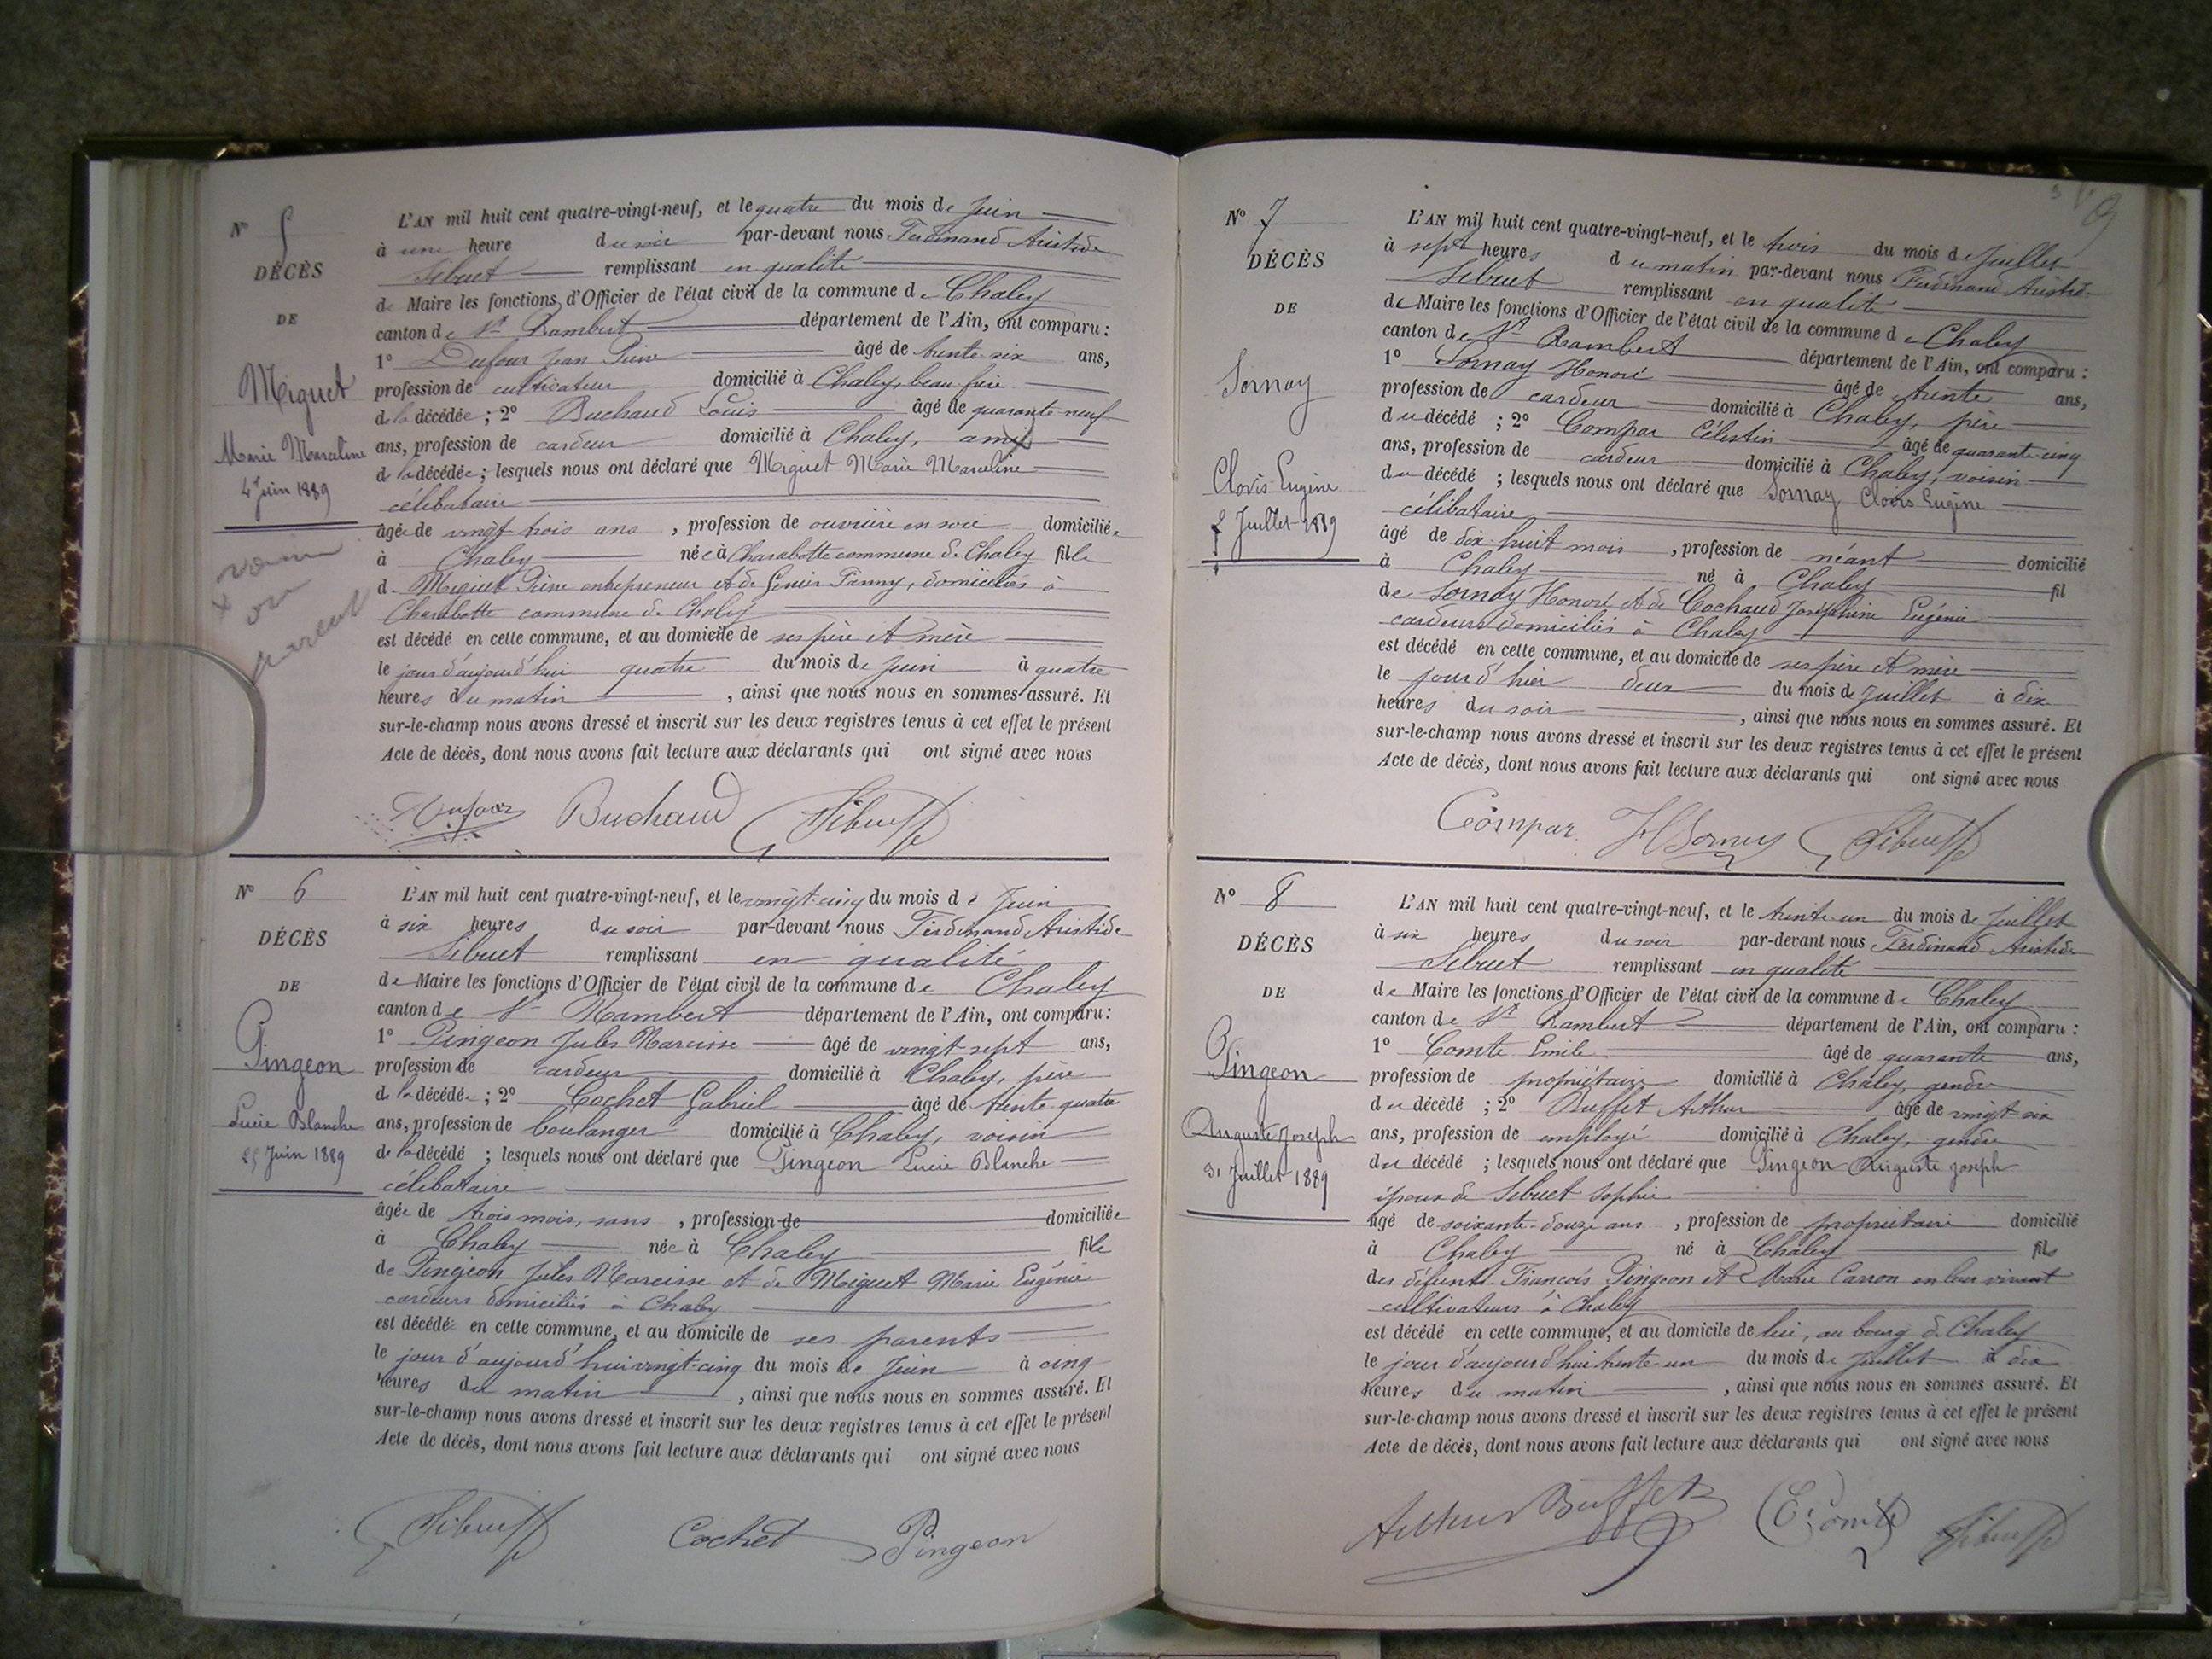 N° 5
DÉCÈS
DE
Miguet
Marie Marceline
4 Juin 1889
voisin
× ou
parent
L'AN mil huit cent quatre-vingt-neuf, et le quatre du mois de Juin
à une heure du soir par-devant nous Ferdinand Aristide
Sibuet remplissant en qualité
de Maire les fonctions d'Officier de l'état civil de la commune de Chaley
canton de St Rambert département de l'Ain, ont comparu :
1° Dufour Jean Pierre âgé de trente six ans,
profession de cultivateur domicilié à Chaley, beau frère
de la décédée ; 2° Buchaud Louis âgé de quarante neuf
ans, profession de cardeur domicilié à Chaley, ami
de la décédée ; lesquels nous ont déclaré que Miguet Marie Marceline
célibataire
âgée de vingt trois ans , profession de ouvrière en soie domiciliée
à Chaley née à Charabotte commune de Chaley fille
de Miguet Pierre entrepreneur et de Fanny, domiciliés à
Charabotte commune de Chaley
est décédé en cette commune, et au domicile de ses père et mère
le jour d'aujourd'hui quatre du mois de Juin à quatre
heures du matin , ainsi que nous nous en sommes assuré. Et
sur-le-champ nous avons dressé et inscrit sur les deux registres tenus à cet effet le présent
Acte de décès, dont nous avons fait lecture aux déclarants qui ont signé avec nous
Dufour Buchaud Sibuet
N° 6
DÉCÈS
DE
Pingeon
Lucie Blanche
25 Juin 1889
L'AN mil huit cent quatre-vingt-neuf, et le vingt-cinq du mois de Juin
à six heures du soir par-devant nous Ferdinand Aristide
Sibuet remplissant en qualité
de Maire les fonctions d'Officier de l'état civil de la commune de Chaley
canton de St Rambert département de l'Ain, ont comparu :
1° Pingeon Jules Narcisse âgé de vingt sept ans,
profession de cardeur domicilié à Chaley, père
de la décédée ; 2° Cochet Gabriel âgé de trente quatre
ans, profession de boulanger domicilié à Chaley, voisin
de la décédé ; lesquels nous ont déclaré que Pingeon Lucie Blanche
célibataire
âgée de trois mois, sans , profession de domiciliée
à Chaley née à Chaley fille
de Pingeon Jules Narcisse et de Miguet Marie Eugénie
cardeurs domiciliés à Chaley
est décédée en cette commune, et au domicile de ses parents
le jour d'aujourd'hui vingt-cinq du mois de Juin à cinq
heures du matin , ainsi que nous nous en sommes assuré. Et
sur-le-champ nous avons dressé et inscrit sur les deux registres tenus à cet effet le présent
Acte de décès, dont nous avons fait lecture aux déclarants qui ont signé avec nous
Sibuet Cochet Pingeon
9
N° 7
DÉCÈS
DE
Sornay
Clovis Eugène
2 Juillet 1889
L'AN mil huit cent quatre-vingt-neuf, et le trois du mois de Juillet
à sept heures du matin par-devant nous Ferdinand Aristide
Sibuet remplissant en qualité
de Maire les fonctions d'Officier de l'état civil de la commune de Chaley
canton de St Rambert département de l'Ain, ont comparu :
1° Sornay Honoré âgé de trente ans,
profession de cardeur domicilié à Chaley, père
du décédé ; 2° Compar Célestin âgé de quarante-cinq
ans, profession de cardeur domicilié à Chaley, voisin
du décédé ; lesquels nous ont déclaré que Sornay Clovis Eugène
célibataire
âgé de dix-huit mois , profession de néant domicilié
à Chaley né à Chaley fil
de Sornay Honoré et de Cochaud Joséphine Eugénie
cardeurs domiciliés à Chaley
est décédé en cette commune, et au domicile de ses père et mère
le jour d'hier deux du mois de Juillet à dix
heures du soir , ainsi que nous nous en sommes assuré. Et
sur-le-champ nous avons dressé et inscrit sur les deux registres tenus à cet effet le présent
Acte de décès, dont nous avons fait lecture aux déclarants qui ont signé avec nous
Compar H Sornay Sibuet
N° 8
DÉCÈS
DE
Pingeon
Auguste Joseph
31 Juillet 1889
L'AN mil huit cent quatre-vingt-neuf, et le trente-un du mois de Juillet
à six heures du soir par-devant nous Ferdinand Aristide
Sibuet remplissant en qualité
de Maire les fonctions d'Officier de l'état civil de la commune de Chaley
canton de St Rambert département de l'Ain, ont comparu :
1° Comte Emile âgé de quarante ans,
profession de propriétaire domicilié à Chaley, gendre
du décédé ; 2° Buffet Arthur âgé de vingt six
ans, profession de employé domicilié à Chaley, gendre
du décédé ; lesquels nous ont déclaré que Pingeon Auguste Joseph
époux de Sibuet Sophie
âgé de soixante-douze ans , profession de propriétaire domicilié
à Chaley né à Chaley fils
des défunts François Pingeon et Marie Carron en leur vivant
cultivateurs à Chaley
est décédé en cette commune, et au domicile de lui, au bourg de Chaley
le jour d'aujourd'hui trente-un du mois de Juillet à dix
heures du matin , ainsi que nous nous en sommes assuré. Et
sur-le-champ nous avons dressé et inscrit sur les deux registres tenus à cet effet le présent
Acte de décès, dont nous avons fait lecture aux déclarants qui ont signé avec nous
Arthur Buffet E Comte Sibuet